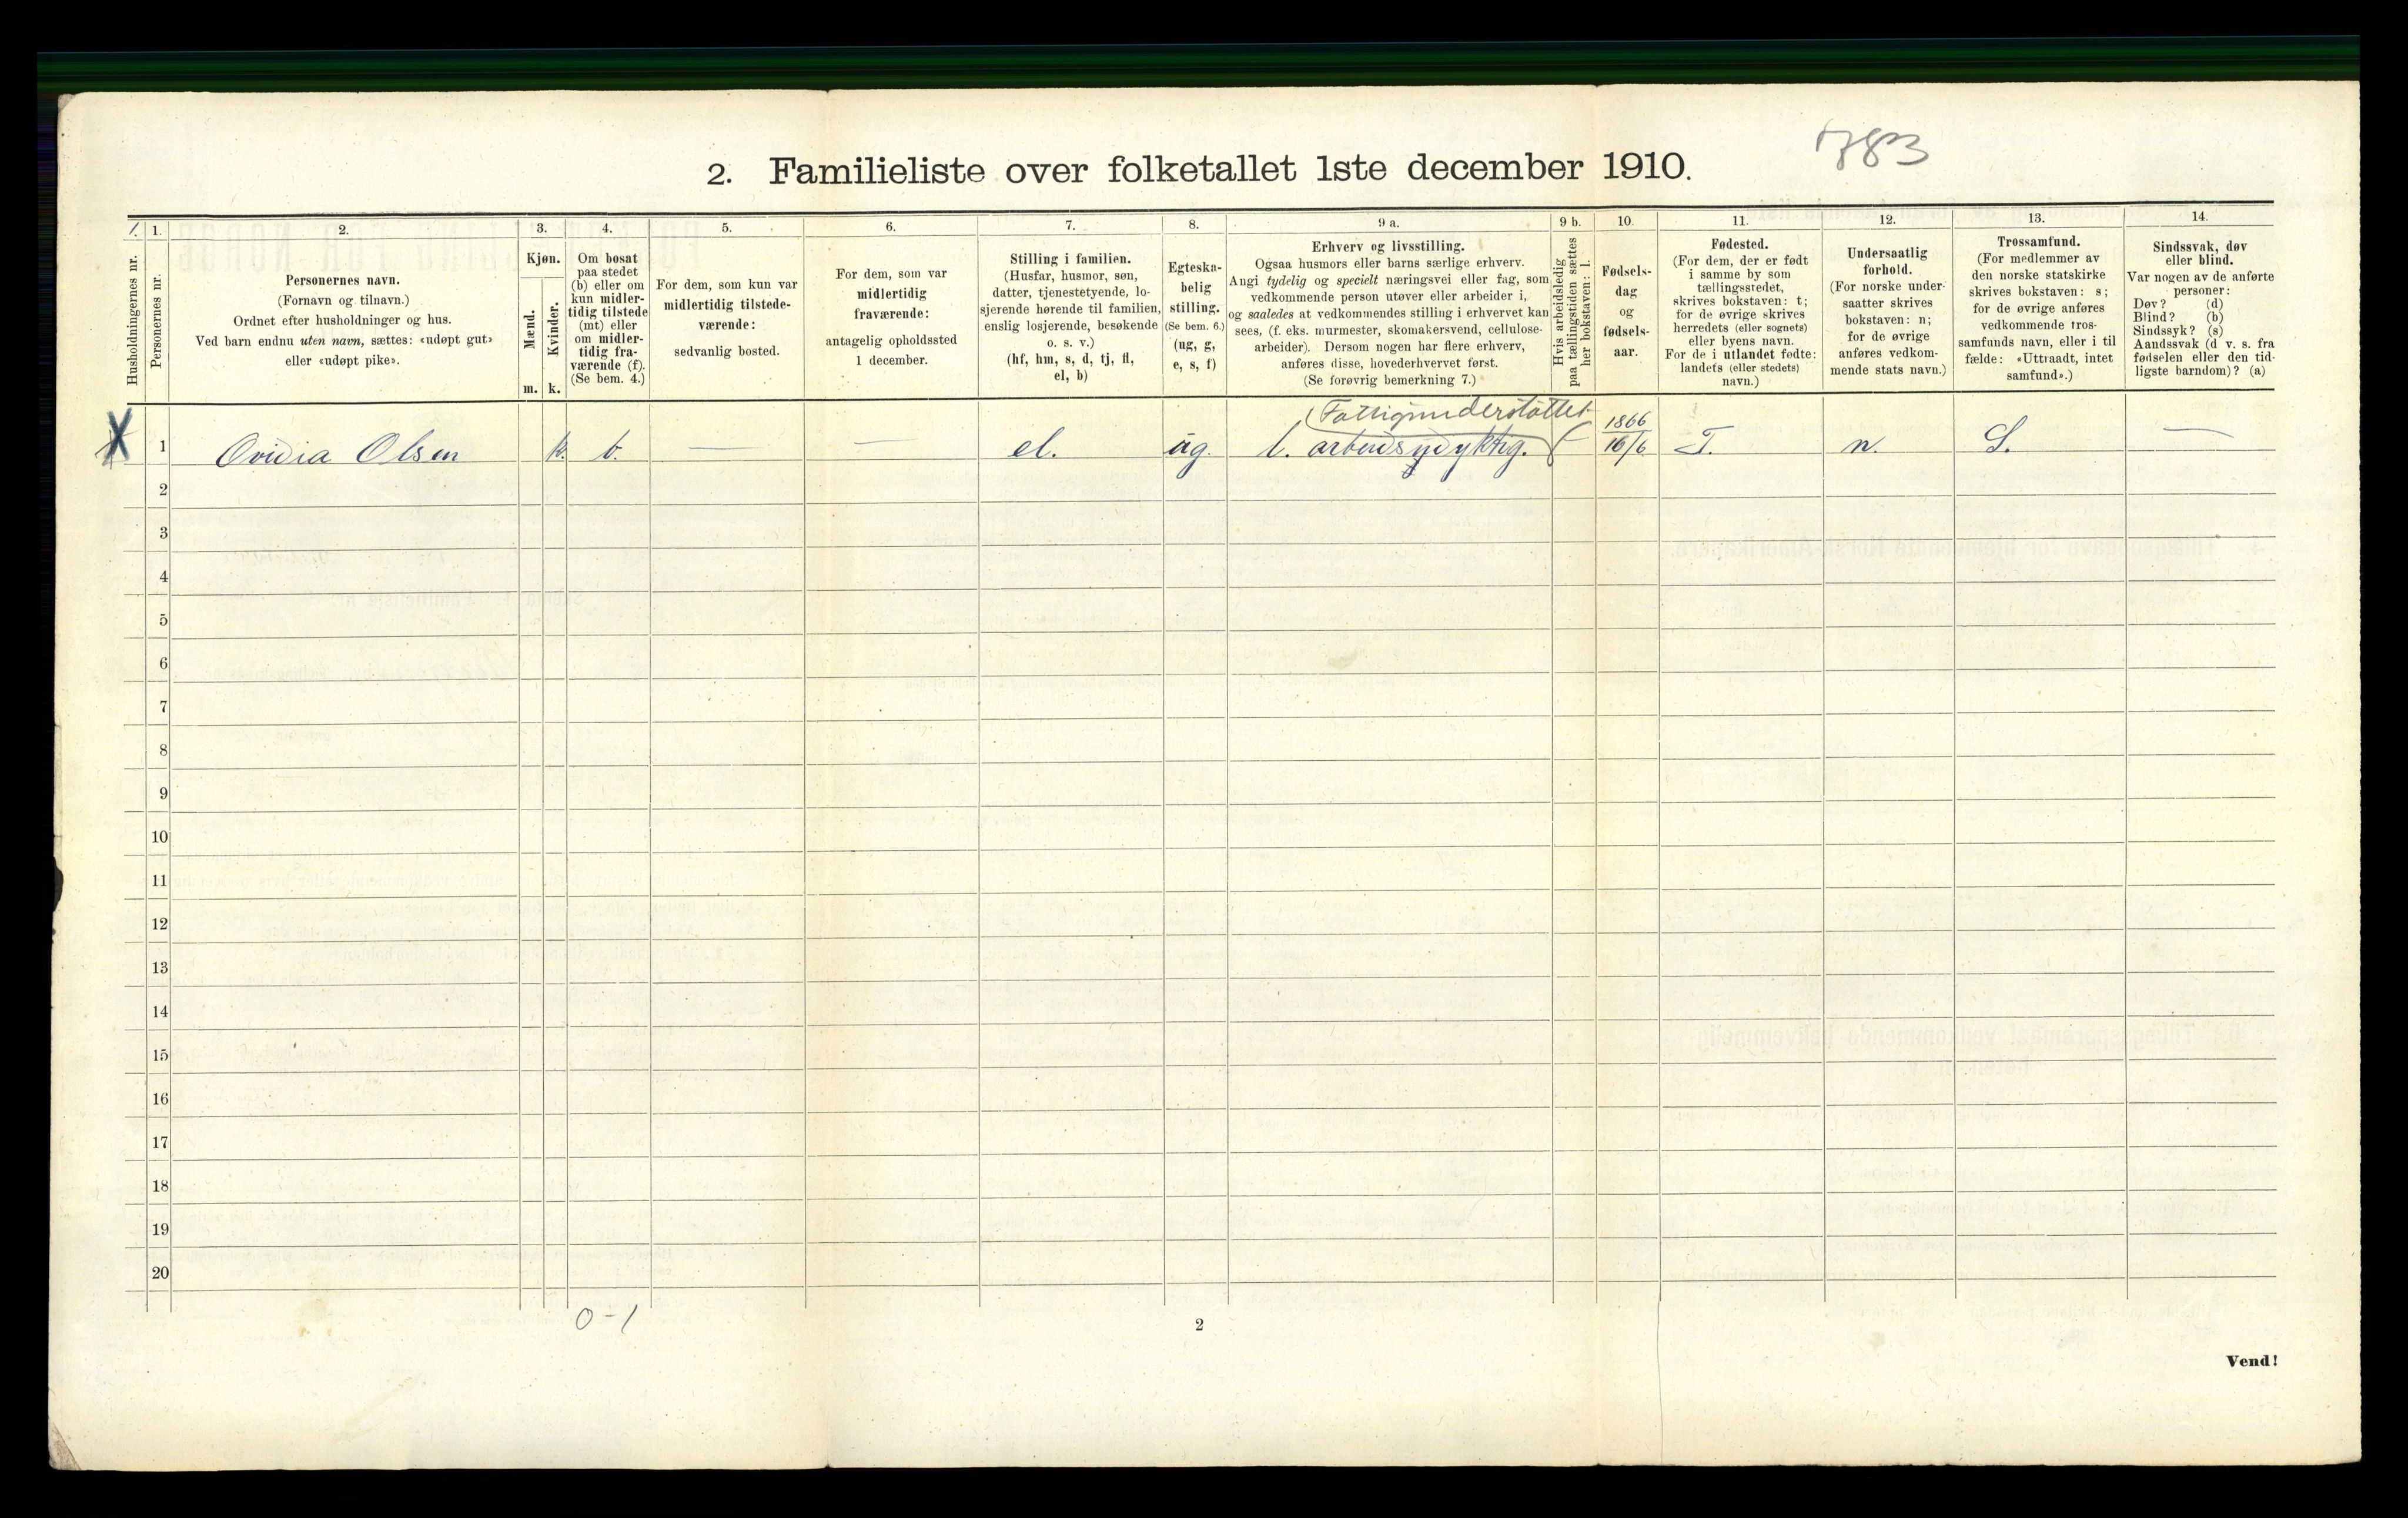 783
2. Familieliste over folketallet 1ste december 1910.
1. 1. 2. 3. 4. 5. 6. 7. 8. 9 a. 9 b. 10. 11. 12. 13. 14.
Husholdningernes nr.
Personernes nr.
Personernes navn.
(Fornavn og tilnavn.)
Ordnet efter husholdninger og hus.
Ved barn endnu uten navn, sættes: «udøpt gut»
eller «udøpt pike».
Kjøn.
Mænd.
Kvinder.
m. k.
Om bosat
paa stedet
(b) eller om
kun midler-
tidig tilstede
(mt) eller
om midler-
tidig fra-
værende (f).
(Se bem. 4.)
For dem, som kun var
midlertidig tilstede-
værende:
sedvanlig bosted.
For dem, som var
midlertidig
fraværende:
antagelig opholdssted
1 december.
Stilling i familien.
(Husfar, husmor, søn,
datter, tjenestetyende, lo-
sjerende hørende til familien,
enslig losjerende, besøkende
o. s. v.)
(hf, hm, s, d, tj, fl,
el, b)
Egteska-
belig
stilling.
(Se bem. 6.)
(ug, g,
e, s, f)
Erhverv og livsstilling.
Ogsaa husmors eller barns særlige erhverv.
Angi tydelig og specielt næringsvei eller fag, som
vedkommende person utøver eller arbeider i,
og saaledes at vedkommendes stilling i erhvervet kan
sees, (f. eks. murmester, skomakersvend, cellulose-
arbeider). Dersom nogen har flere erhverv,
anføres disse, hovederhvervet først.
(Se forøvrig bemerkning 7.)
Hvis arbeidsledig
paa tællingstiden sættes
her bokstaven: l.
Fødsels-
dag
og
fødsels-
aar.
Fødested.
(For dem, der er født
i samme by som
tællingsstedet,
skrives bokstaven: t;
for de øvrige skrives
herredets (eller sognets)
eller byens navn.
For de i utlandet fødte:
landets (eller stedets)
navn.)
Undersaatlig
forhold.
(For norske under-
saatter skrives
bokstaven: n;
for de øvrige
anføres vedkom-
mende stats navn.)
Trossamfund.
(For medlemmer av
den norske statskirke
skrives bokstaven: s;
for de øvrige anføres
vedkommende tros-
samfunds navn, eller i til-
fælde: «Uttraadt, intet
samfund».)
Sindssvak, døv
eller blind.
Var nogen av de anførte
personer:
Døv? (d)
Blind? (b)
Sindssyk? (s)
Aandssvak (d v. s. fra
fødselen eller den tid-
ligste barndom)? (a)
(Fattigunderstøttet
X 1 Ovidia Olsen k. b. — — el. ug. l. arbeidsydyktig. 1866 16/6 T. n. S. —
2
3
4
5
6
7
8
9
10
11
12
13
14
15
16
17
18
19
20
0-1
2
Vend!